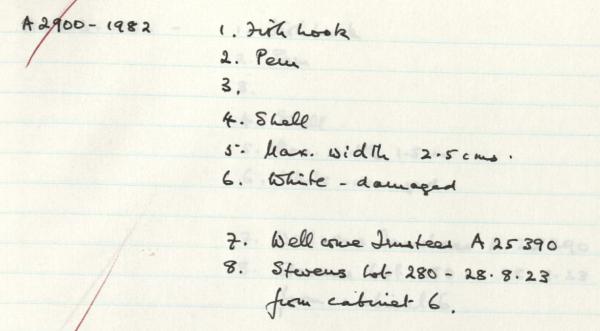 A2900-1982 1. Fish hook
2. Peru
3.
4. Shell
5. Max. width 2.5 cms.
6. White - damaged
7. Wellcome Trustees A 25390
8. Stevens Lot 280 - 28.8.23
from cabinet 6.